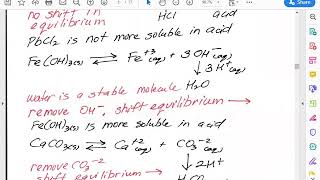 no shift in
equilibrium
HCl acid
PbCl₂ is not more soluble in acid
Fe(OH)₃(s) ⇌ Fe⁺³(aq) + 3OH⁻(aq)
↓ 3H⁺(aq)
water is a stable molecule H₂O
remove OH⁻, shift equilibrium →
Fe(OH)₃(s) is more soluble in acid
CaCO₃(s) ⇌ Ca⁺²(aq) + CO₃⁻²(aq)
↓ 2H⁺
remove CO₃⁻²
shift equilibrium →